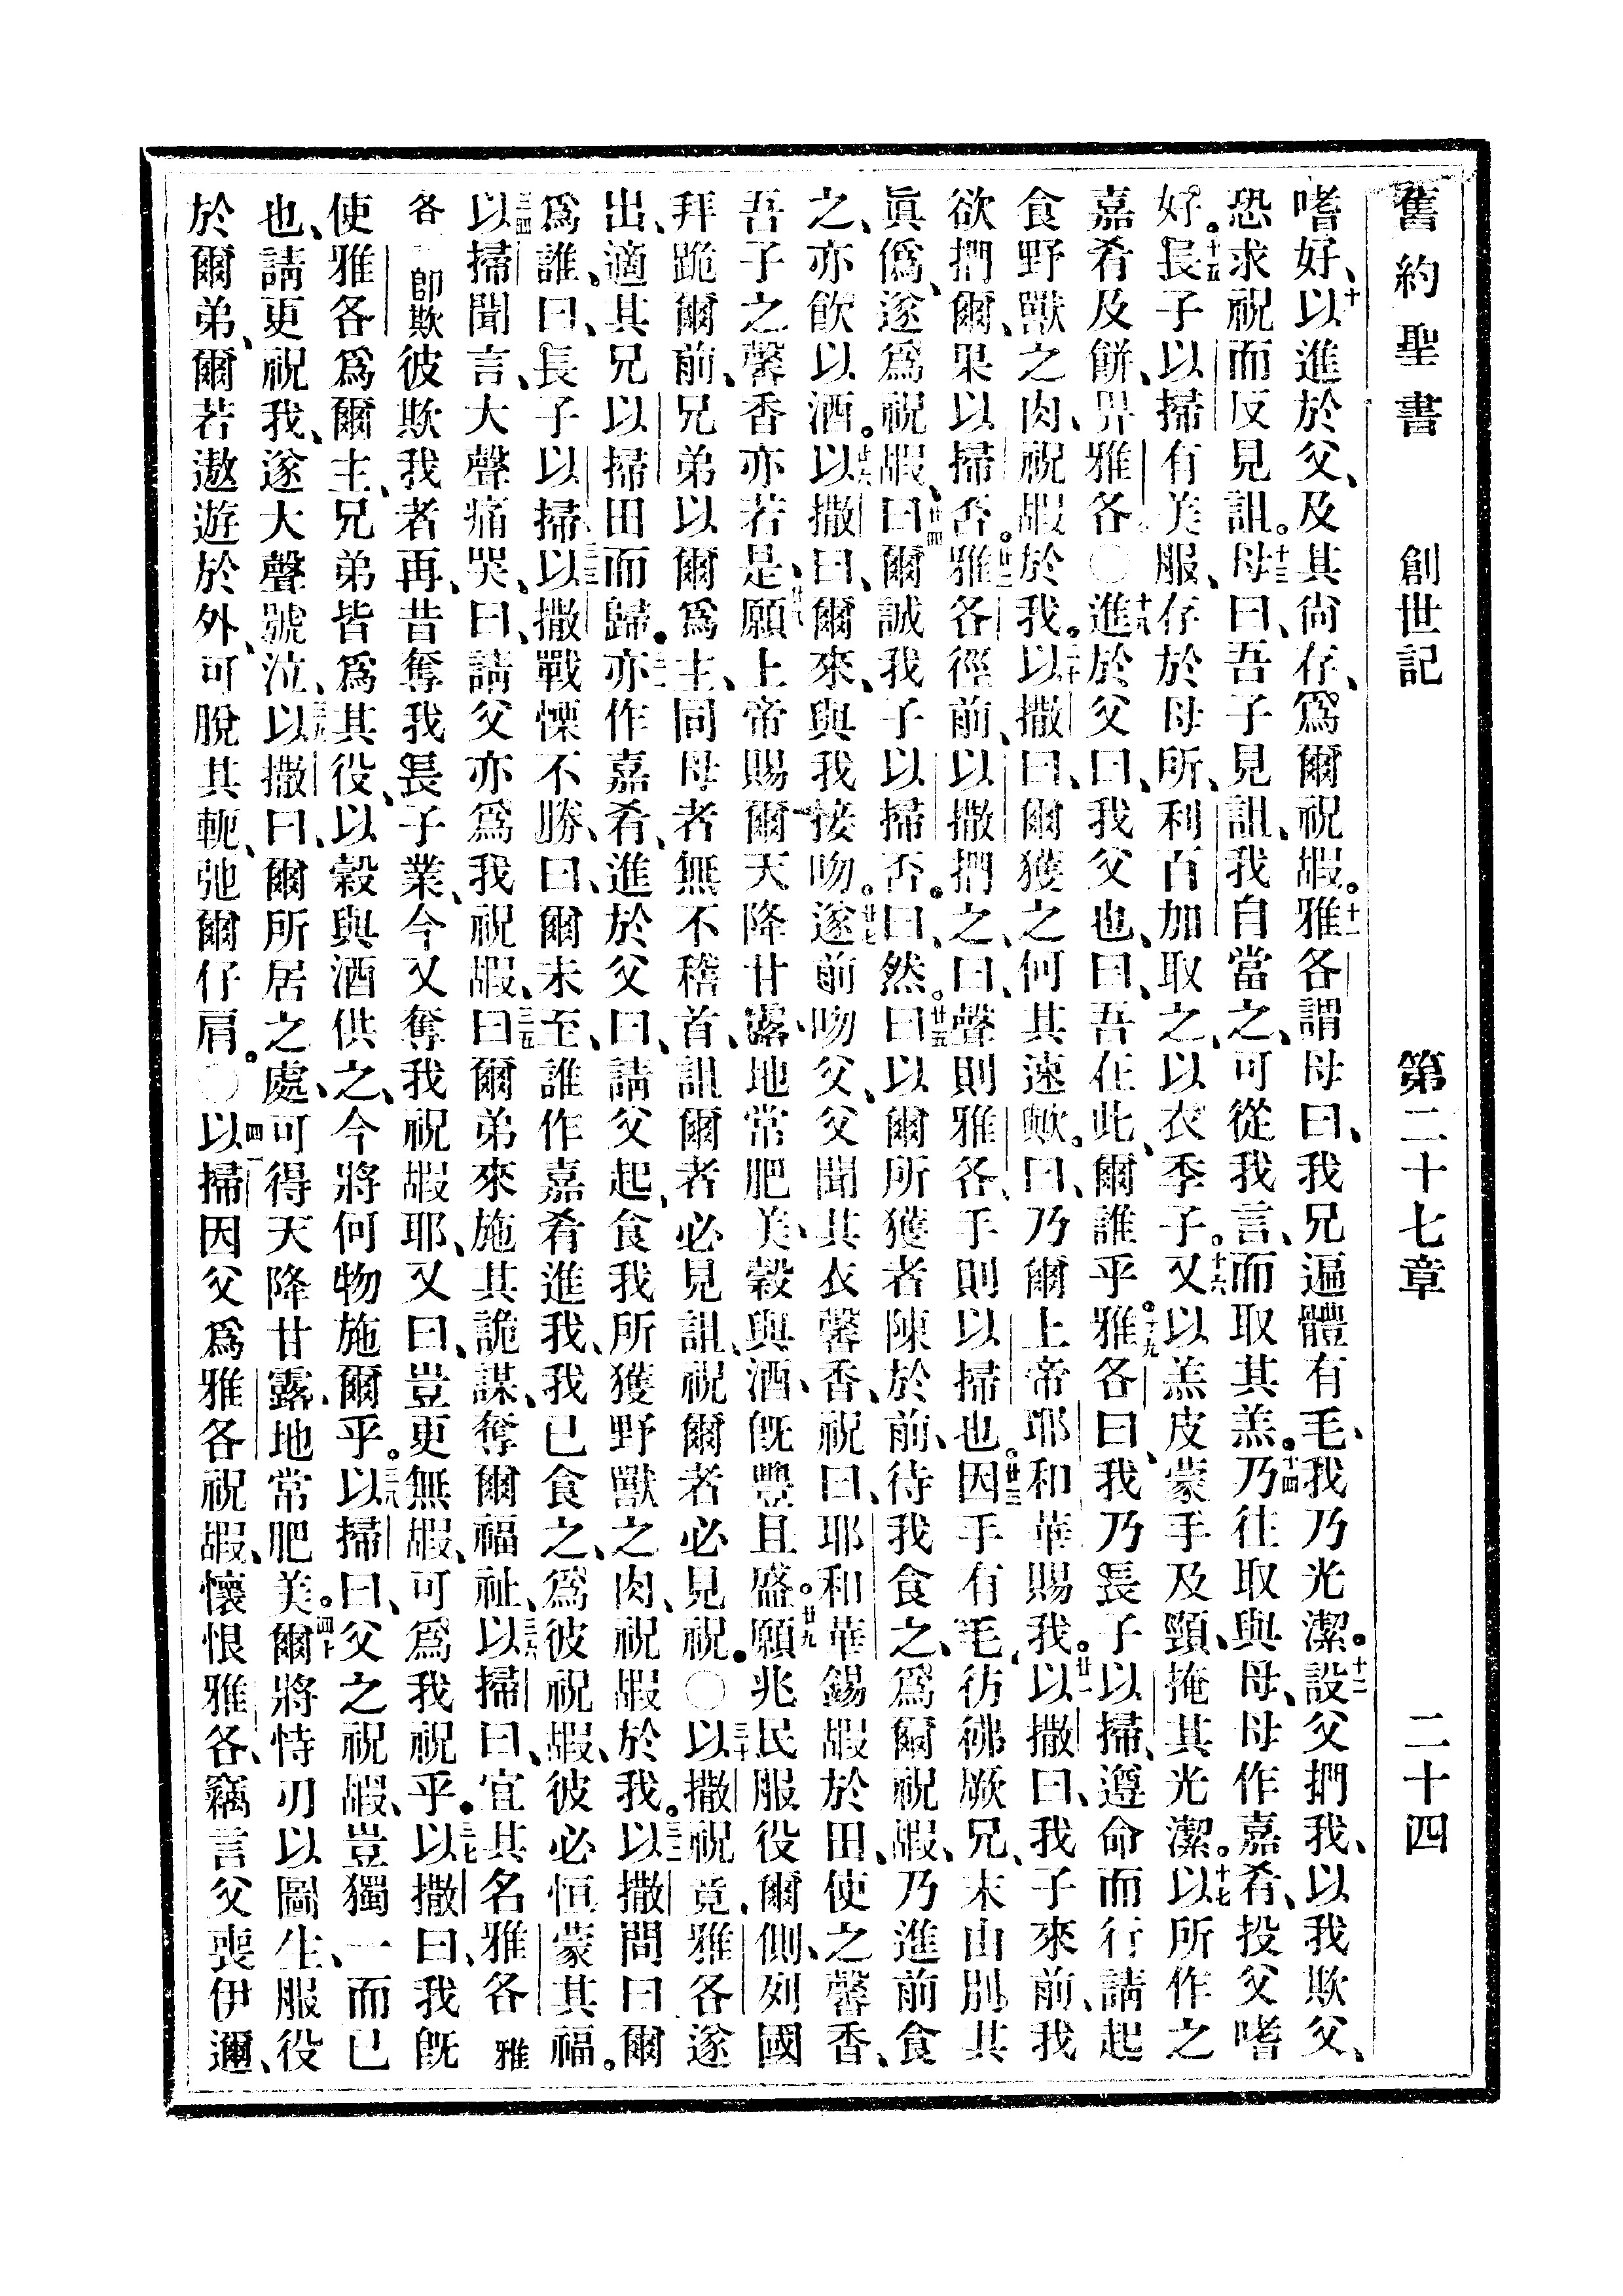 舊約聖書 創世記 第二十七章 二十四
嗜好、十以進於父、及其尙存、爲爾祝嘏。十一雅各謂母曰、我兄遍體有毛、我乃光潔。十二設父捫我、以我欺父、
恐求祝而反見詛。十三母曰、吾子見詛、我自當之、可從我言、而取其羔。十四乃往取與母、母作嘉肴、投父嗜
好。十五長子以掃有美服、存於母所、利百加取之、以衣季子。十六又以羔皮蒙手及頸、掩其光潔。十七以所作之
嘉肴及餅、畀雅各○十八進於父曰、我父也、曰、吾在此、爾誰乎。十九雅各曰、我乃長子以掃、遵命而行、請起
食野獸之肉、祝嘏於我。二十以撒曰、爾獲之何其速歟。曰、乃爾上帝耶和華賜我。廿一以撒曰、我子來前、我
欲捫爾、果以掃否。廿二雅各徑前、以撒捫之、曰、聲則雅各、手則以掃也。廿三因手有毛、彷彿厥兄、未由別其
眞僞、遂爲祝嘏、廿四曰爾誠我子以掃否。曰、然。廿五曰以爾所獲者陳於前、待我食之、爲爾祝嘏、乃進前食
之、亦飮以酒。廿六以撒曰、爾來、與我接吻。廿七遂前吻父、父聞其衣馨香、祝曰、耶和華錫嘏於田、使之馨香、
吾子之馨香亦若是、廿八願上帝賜爾天降甘露、地常肥美、穀與酒、旣豐且盛。廿九願兆民服役爾側、列國
拜跪爾前、兄弟以爾爲主、同母者無不稽首、詛爾者必見詛、祝爾者必見祝。○三十以撒祝竟、雅各遂
出、適其兄以掃田而歸。三一亦作嘉肴、進於父曰、請父起、食我所獲野獸之肉、祝嘏於我。三二以撒問曰爾
爲誰、曰、長子以掃、三三以撒戰慄不勝、曰、爾未至、誰作嘉肴進我、我已食之、爲彼祝嘏、彼必恒蒙其福。
三四以掃聞言、大聲痛哭、曰、請父亦爲我祝嘏、三五曰爾弟來施其詭謀、奪爾福祉、三六以掃曰、宜其名雅各雅
各卽欺彼欺我者再、昔奪我長子業、今又奪我祝嘏耶、又曰、豈更無嘏、可爲我祝乎。三七以撒曰、我旣
使雅各爲爾主、兄弟皆爲其役、以穀與酒供之、今將何物施爾乎。三八以掃曰、父之祝嘏、豈獨一而已
也、請更祝我、遂大聲號泣、三九以撒曰、爾所居之處、可得天降甘露、地常肥美。四十爾將恃刃以圖生、服役
於爾弟、爾若遨遊於外、可脫其軛、弛爾仔肩。○四一以掃因父爲雅各祝嘏、懷恨雅各、竊言父喪伊邇、